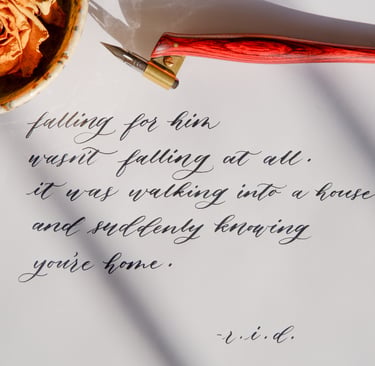 falling for him
wasn't falling at all.
it was walking into a house
and suddenly knowing
you're home.
-r.i.d.